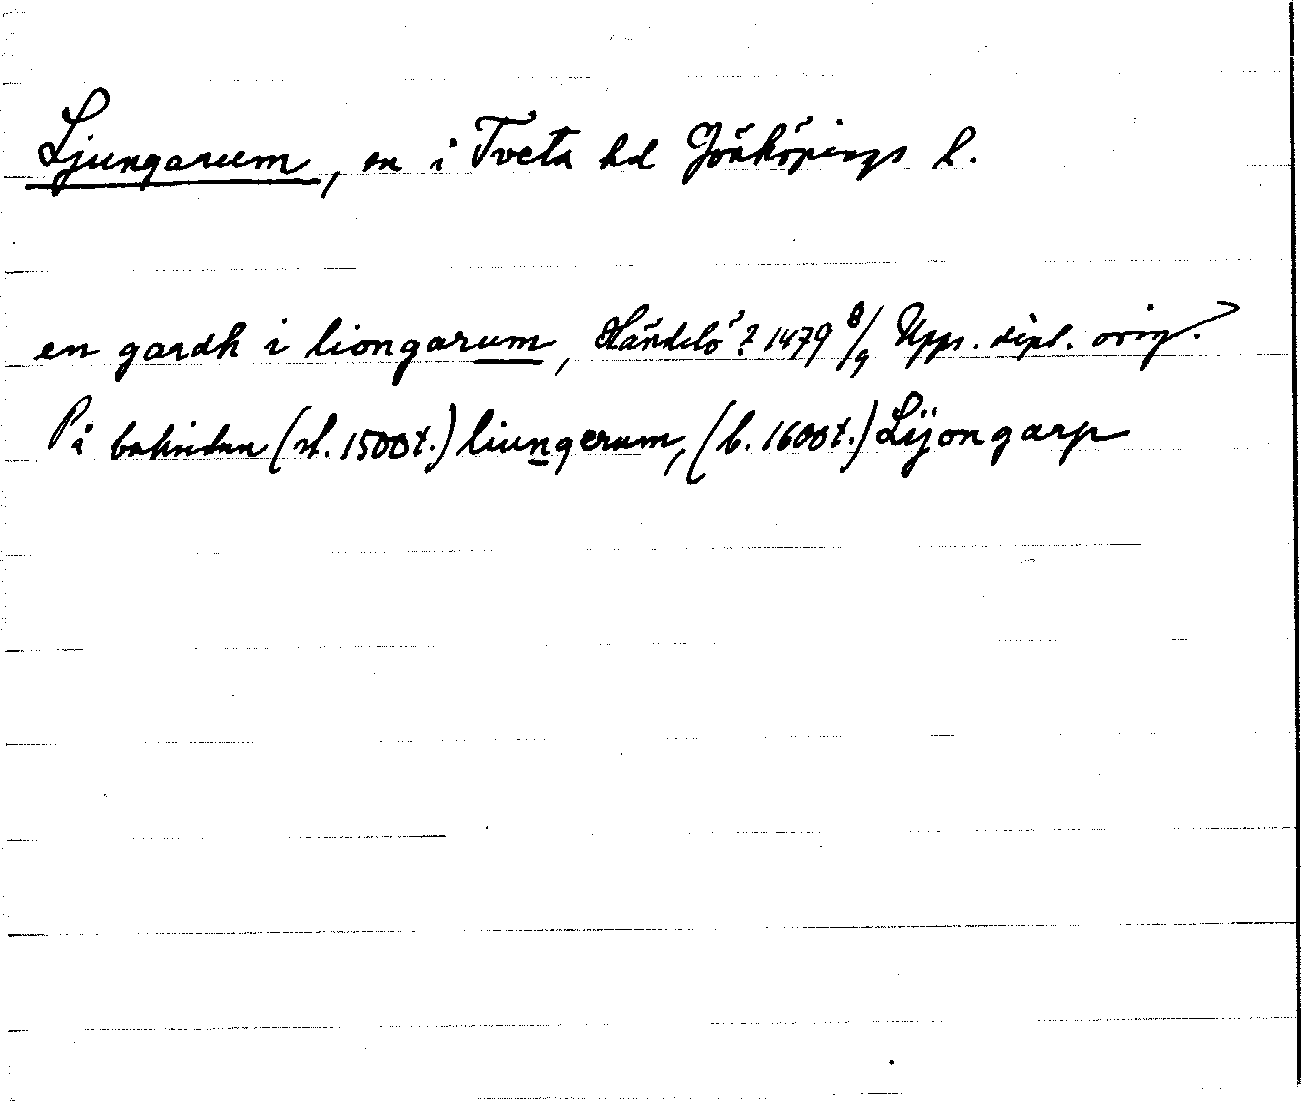 Ljungarum, sn i Tveta hd Jönköpings l.
en gardh i liongarum, Händelö? 1479 8/9 Upps. dipl. orig.
På baksidan (sl. 1500t.) liungerum, (b. 1600t.) Lijongarp